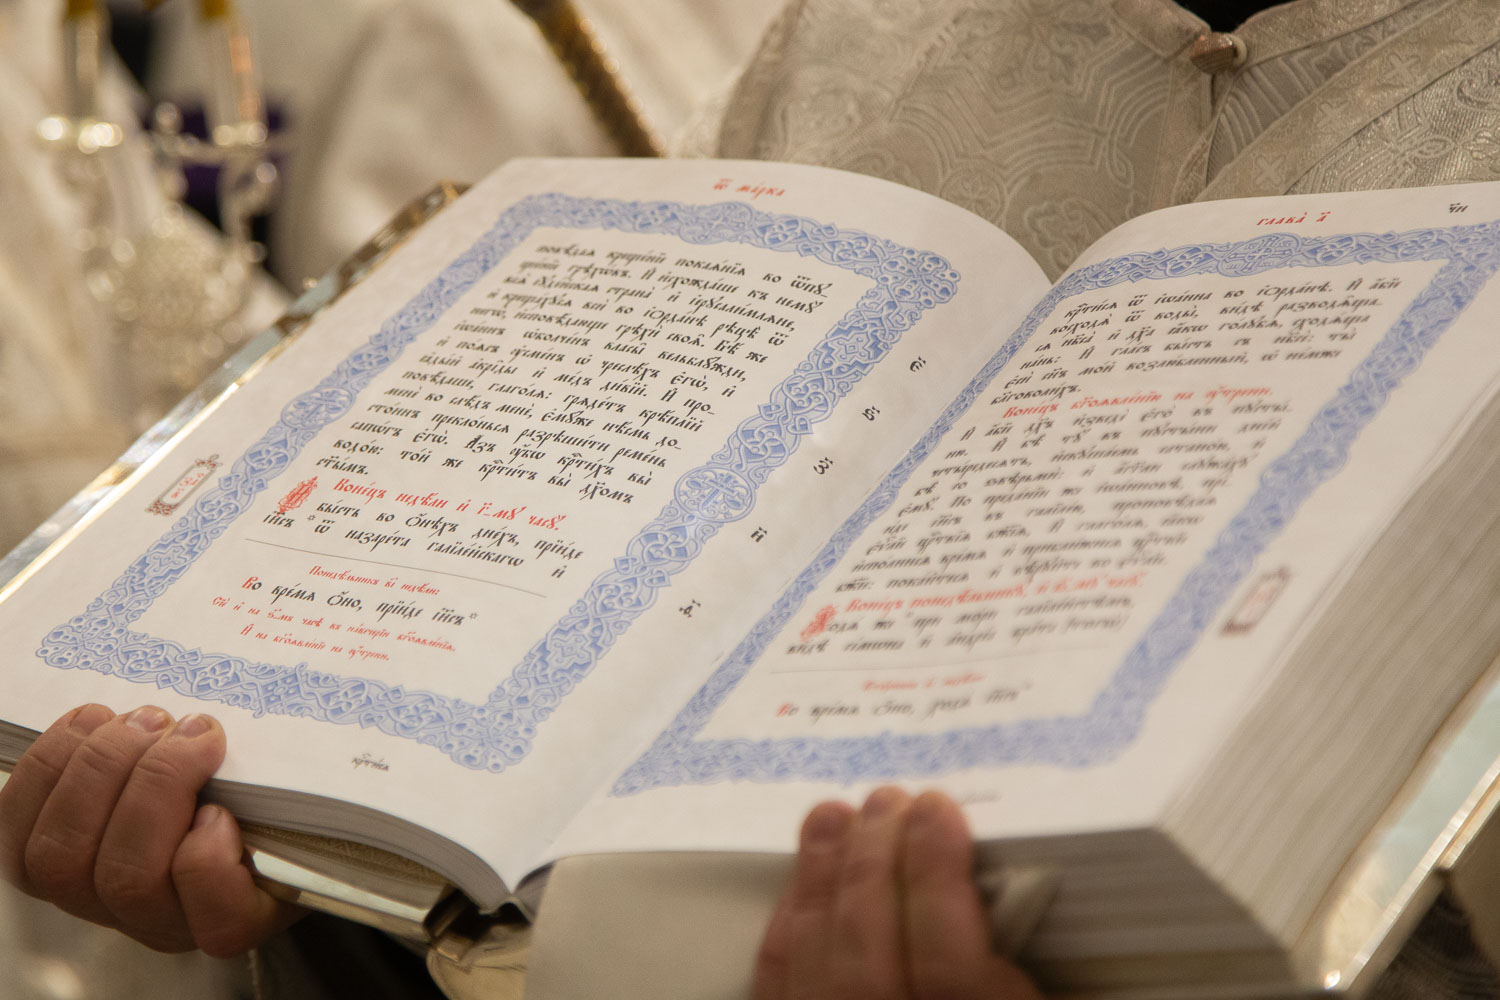 ѿ ма́рка
повѣ́дая крещⷠе́нїе покая́нїя во ѿпꙋ-
ще́нїе грѣхѡ́въ. И҆ и҆схожда́ше къ немꙋ̀
всѧ̀ і҆ꙋде́йскаѧ страна̀ и҆ і҆ерⷭ҇ли́млѧне,
и҆ креща́хꙋсѧ всѝ во і҆ѻрда́нѣ рѣцѣ̀ ѿ
негѡ̀, и҆сповѣ́дающе грѣхѝ своѧ̑. Бѣ́ же
і҆ѡа́ннъ ѡ҆болче́нъ вла̑сы вельблꙋ̑жди,
и҆ по́ѧсъ ᲂу҆сме́нъ ѡ҆ чре́слѣхъ є҆гѡ̀, и҆
ꙗ҆ды́й а҆кри́ды и҆ ме́дъ ди́вїй. И҆ про-
повѣ́даше, глаго́лѧ: грѧде́тъ крѣ́плїй
менє̀ во слѣ́дъ менє̀, є҆мꙋ́же нѣ́смь до-
сто́инъ прикло́ньсѧ разрѣши́ти реме́нь
сапѡ́гъ є҆гѡ̀. А҆́зъ ᲂу҆́бѡ крⷭ҇ти́хъ вы̀
водо́ю: то́й же крⷭ҇ти́тъ вы̀ дх҃омъ
ст҃ы́мъ.
Коне́цъ недѣ́ли и҆ г҃-мꙋ часꙋ̀.
бы́сть во ѻ҆́нѣхъ дне́хъ, прїи́де
і҆и҃съ ѿ назаре́та галїле́йскагѡ и҆
Понедѣ́льникъ в҃і недѣ́ли:
Во вре́мѧ ѻ҆́но, прїи́де і҆и҃съ
Се́й и҆ на
И҆ на бг҃оѧвле́нїе на ᲂу҆́трени.
крⷭ҇ти́сѧ
є҃і
ѕ҃
з҃
и҃
ѳ҃
глава̀ а҃
чи
крⷭ҇ти́сѧ ѿ і҆ѡа́нна во і҆ѻрда́нѣ. И҆ а҆́бїе
восходѧ̀ ѿ воды̀, ви́дѣ разводѧ̑щасѧ
нб҃са̀ и҆ дх҃а ꙗ҆́кѡ го́лꙋбѧ, сходѧ́ща
на́нь: И҆ гла́съ бы́сть съ нб҃сѐ: ты̀
є҆сѝ сн҃ъ мо́й возлю́бленный, ѡ҆ не́мже
бл҃говоли́хъ.
Коне́цъ бг҃оѧвле́нїю на ᲂу҆́трени.
И҆ а҆́бїе дх҃ъ и҆зведѐ є҆го̀ въ пꙋсты́-
ню. И҆ бѣ̀ тꙋ̀ въ пꙋсты́ни дні́й
четы́редесѧть, и҆скꙋша́емь сатано́ю, и҆
бѣ̀ со ѕвѣрьмѝ: и҆ а҆́гг҃ли слꙋжа́хꙋ
є҆мꙋ̀. По преда́нїи же і҆ѡа́нновѣ, прї-
и́де і҆и҃съ въ галїле́ю, проповѣ́даѧ
є҆ѵⷢ҇лїе црⷭ҇твїѧ бж҃їѧ, И҆ глаго́лѧ, ꙗ҆́кѡ
и҆спо́лнисѧ вре́мѧ и҆ прибли́жисѧ црⷭ҇твїе
бж҃їе: пока́йтесѧ и҆ вѣ́рꙋйте во є҆ѵⷢ҇лїе.
Коне́цъ понедѣ́льникꙋ
Ходѧ̀ же при мо́ри галїле́йстѣмъ,
ви́дѣ сі́мѡна и҆ а҆ндре́а бра́та
Во вре́мѧ ѻ҆́но, ходѧ̀ і҆и҃съ